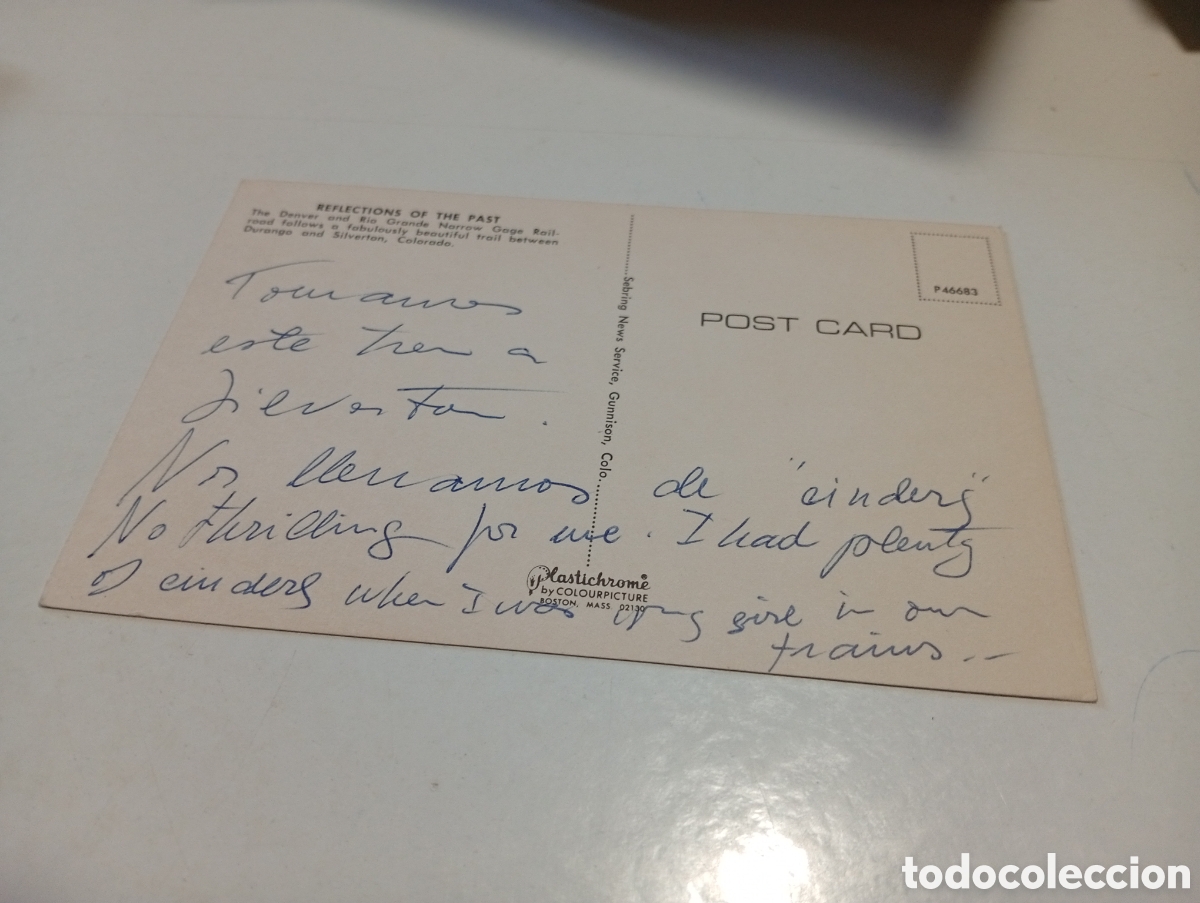 REFLECTIONS OF THE PAST
The Denver and Rio Grande Narrow Gage Rail-
road follows a fabulously beautiful trail between
Durango and Silverton, Colorado.
Tomamos
este tren a
Silverton.
Nos llenamos de "cinders"
No thrilling for me. I had plenty
of cinders when I was young girl in our
trains...
Sebring News Service, Gunnison, Colo.
Plastichrome
by COLOURPICTURE
BOSTON, MASS. 02130
POST CARD
P46683
todocoleccion